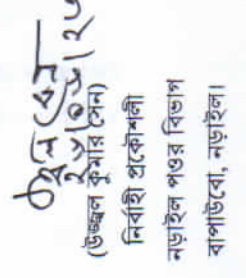 (উজ্জ্বল কুমার সেন)
নির্বাহী প্রকৌশলী
নড়াইল পওর বিভাগ
বাপাউবো, নড়াইল।